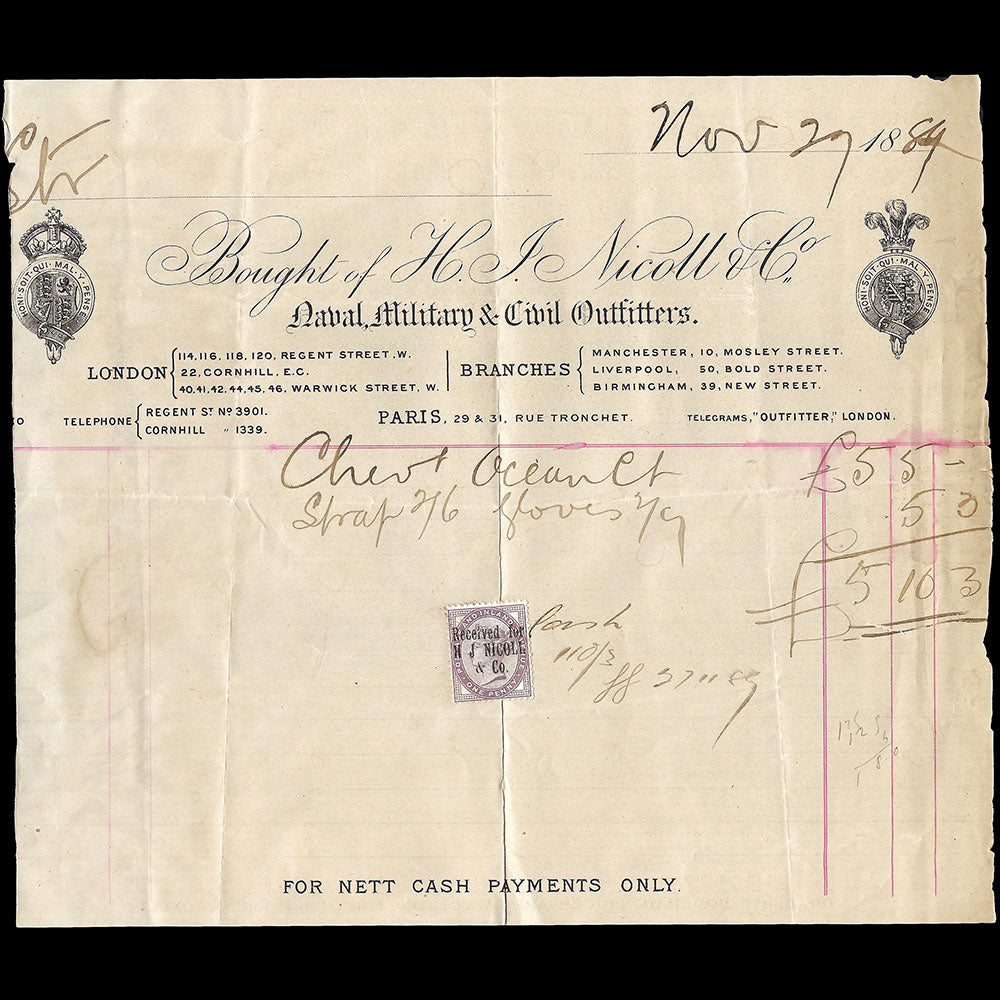 Nov 29 1889
Str
Bought of H. J. Nicoll & Co.,
Naval, Military & Civil Outfitters.
HONI·SOIT·QUI·MAL·Y·PENSE
HONI·SOIT·QUI·MAL·Y·PENSE
LONDON
114, 116, 118, 120, REGENT STREET, W.
22, CORNHILL, E.C.
40, 41, 42, 44, 45, 46, WARWICK STREET, W.
BRANCHES
MANCHESTER, 10, MOSLEY STREET.
LIVERPOOL, 50, BOLD STREET.
BIRMINGHAM, 39, NEW STREET.
TELEPHONE
REGENT ST No 3901.
CORNHILL „ 1339.
PARIS, 29 & 31, RUE TRONCHET.
TELEGRAMS, "OUTFITTER," LONDON.
Chevt Ocean Ct £5 5 -
Strap 2/6 Gloves 2/9 5 3
£5 10 3
POSTAGE AND INLAND REVENUE
Received for
H J NICOLL
& Co.
ONE PENNY
Cash
110/3
FOR NETT CASH PAYMENTS ONLY.